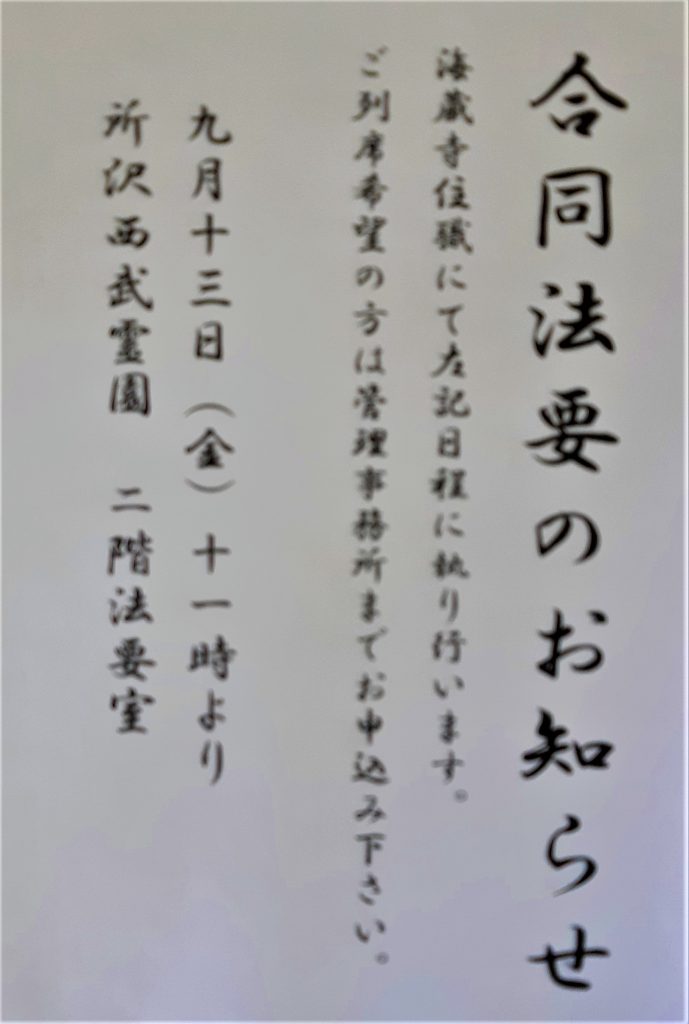 合同法要のお知らせ
海蔵寺住職にて左記日程に執り行います。
ご列席希望の方は管理事務所までお申込み下さい。
九月十三日（金）十一時より
所沢西武霊園　二階法要室